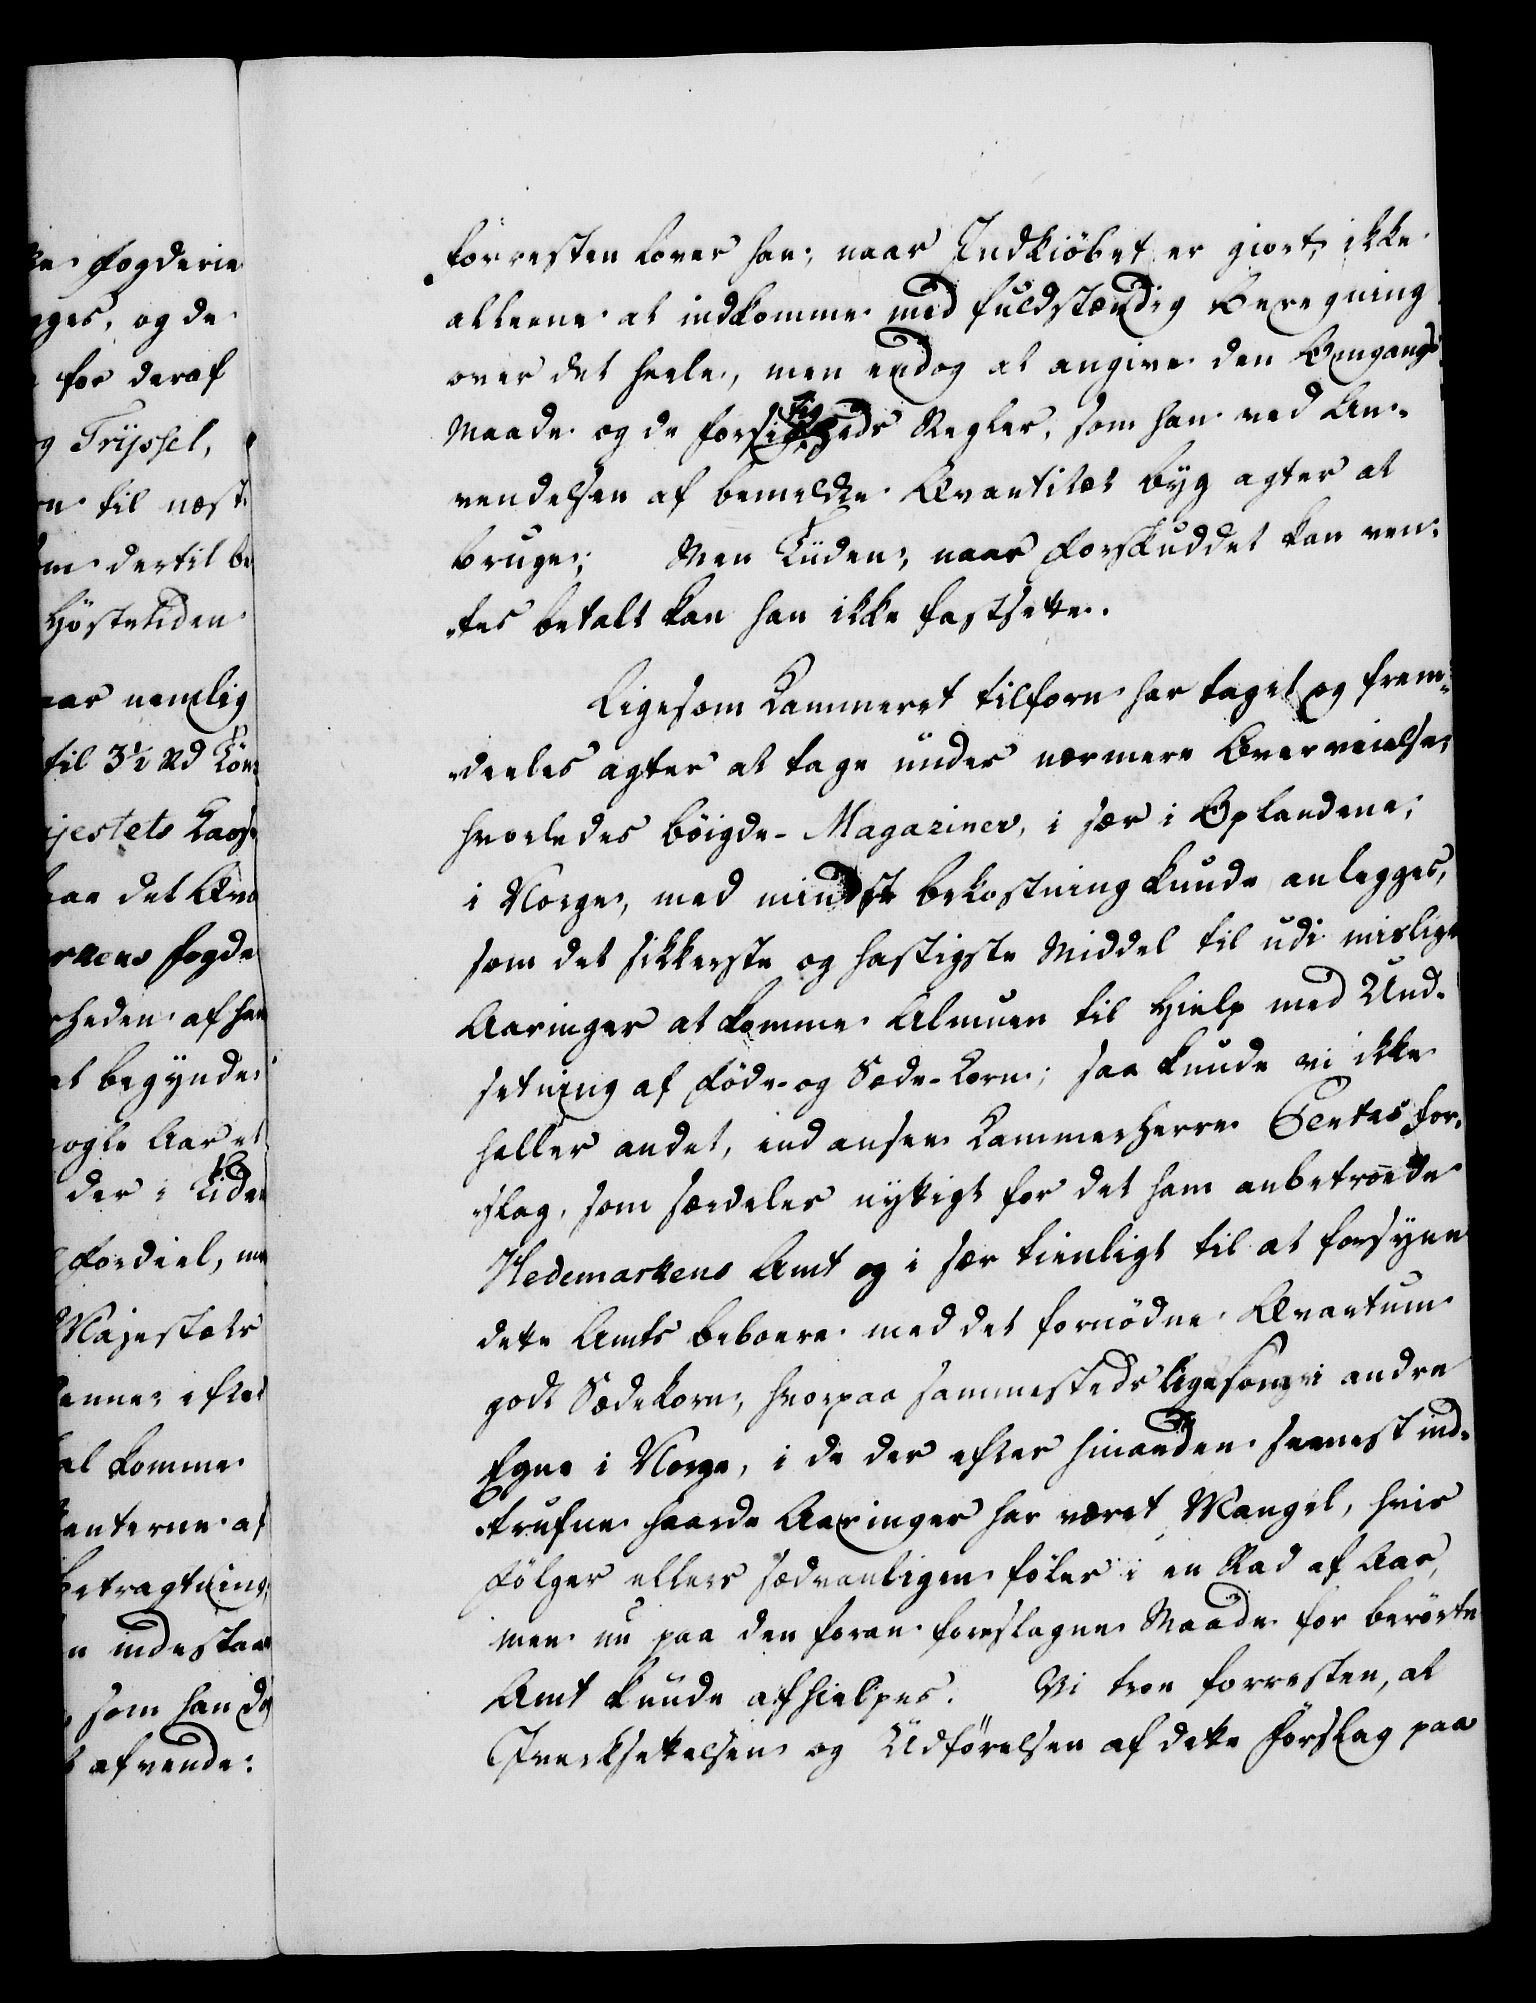 ke fogderie
gges, og de
for deraf
g Tryssel,
n til næst
om dertil be
Høstetiden
aar nemlig
til 3½ Rd Tøn
jestets Casse
paa det Qva
rkens fogde
heden af han
at begynde
nogle Aar at
der i Tiden
fordeel, men
Majestæts
kommer
enterne af
betragtning,
n indestaae
som han dog
afvende:
forresten lover han, naar Indkiøbet er giort, ikke
alleene at indkomme med fuldstændig Beregning
over det heele, men endog at angive den Omgangs
Maade og de forsigtigheds Regler, som han ved An-
vendelsen af bemeldte Qvantitet Byg agter at
bruge; Men Tiiden, naar Forskuddet kan ven-
tes betalt kan han ikke fastsette.
Ligesom Kammeret tilforn har taget og frem-
deeles agter at tage under nærmere Overveielse,
hvorledes Bøigde-Magaziner, i sær i Oplandene,
i Norge, med mindst bekostning kunde anlegges,
som det sikkerste og hastigste Middel til udi mislige
Aaringer at komme Almuen til Hielp med Und-
setning af Føde- og Sæde-Korn; saa kunde vi ikke
heller andet, end ansee Kammerherre Sentes for-
slag, som særdeles nyttigt for det ham anbetroede
Hedemarkens Amt og i sær tienligt til at forsyne
dette Amts beboere med det fornødne Qvantum
godt Sædekorn, hvorpaa sammesteds ligesom i andre
Egne i Norge, i de der efter hinanden seenest ind-
trufne haarde Aaringer har været Mangel, hvis
Følger ellers sædvanligen føles i en Rad af Aar,
men nu paa den foran foreslagne Maade for berørte
Amt kunde afhielpes. Vi troe forresten, at
Iverksettelsen og Udførelsen af dette Forslag paa